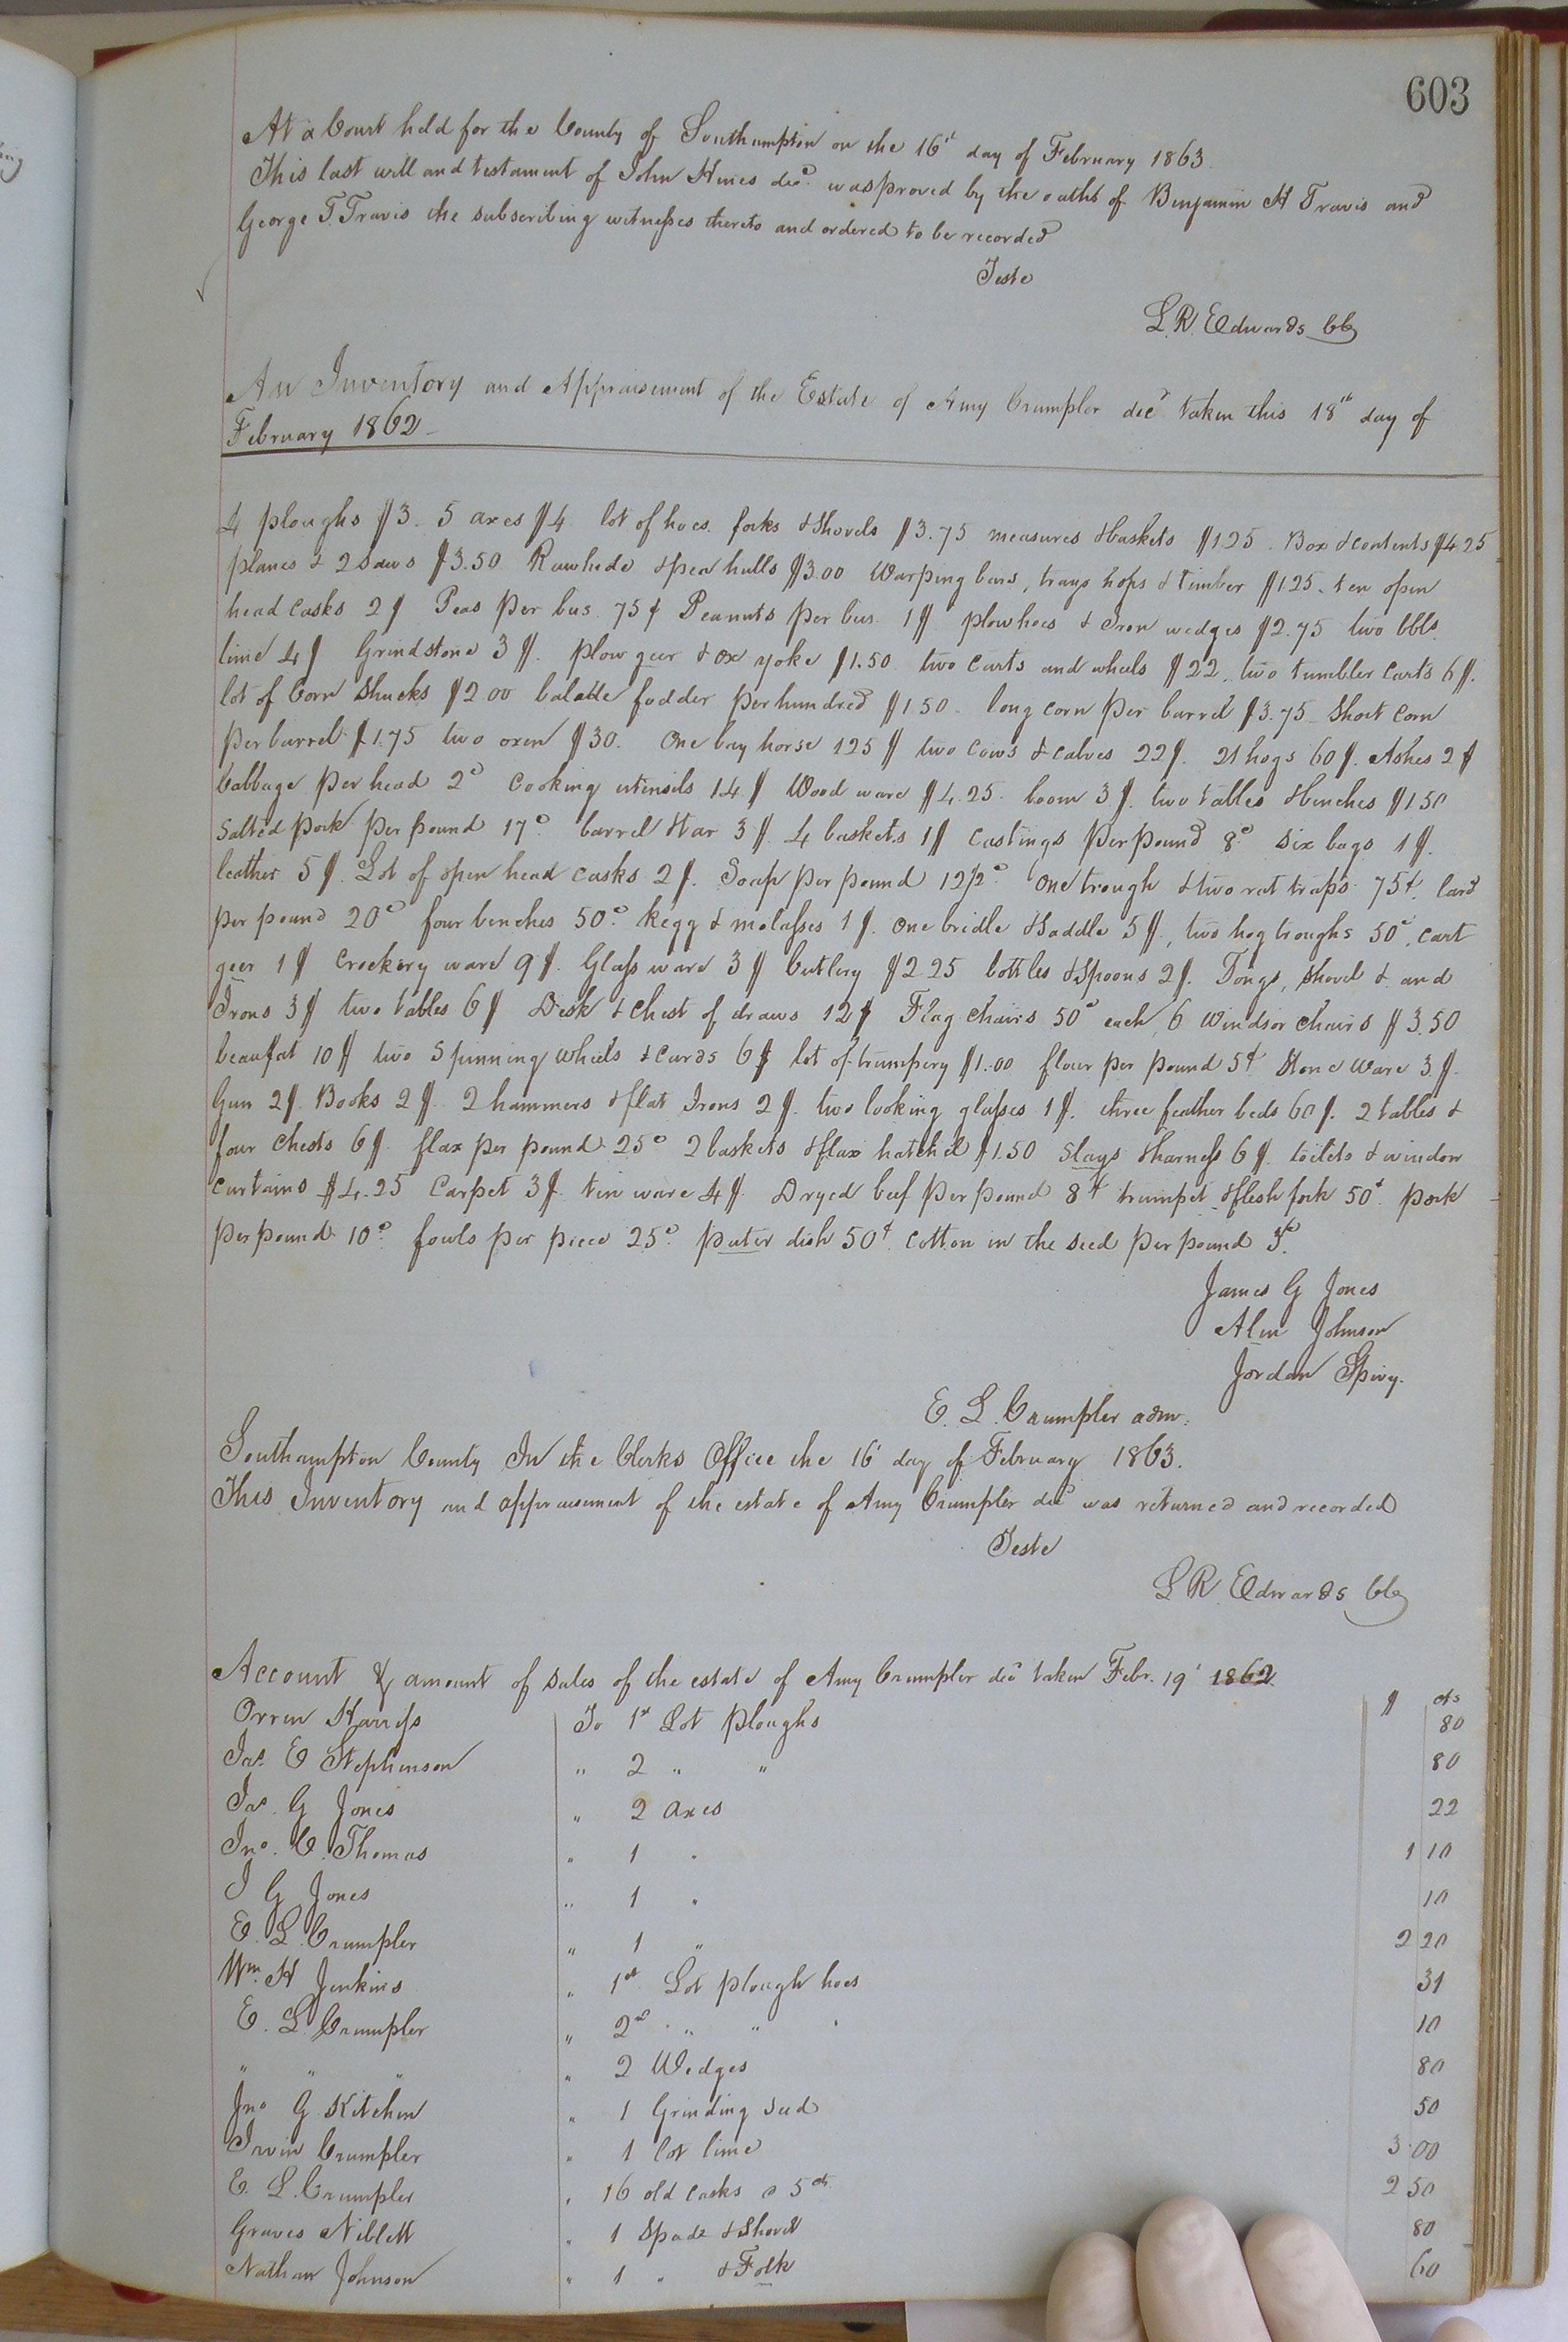 603
At a Court held for the County of Southampton on the 16t day of February 1863.
This last will and testament of John Hines decd was proved by the oaths of Benjamin H Travis and
George T. Travis the subscribing witnesses thereto and ordered to be recorded
Teste
L. R. Edwards Clk
An Inventory and Appraisement of the Estate of Amy Crumpler decd taken this 18th day of
February 1862
4 ploughs $3. 5 axes $4 lot of hoes. forks & Shovels $3.75 measures & baskets $1.25. Box & contents $4.25
planes & 2 saws $3.50 Rawhide & pea hulls $3.00 Warping bars, trays hops & timber $1.25. ten open
head casks 2$ Peas per bus. 75¢ Peanuts per bus. 1$ plow hoes & Iron wedges $2.75 two bbls
lime 4$ Grindstone 3$. plow geer & ox yoke $1.50 two carts and wheels $22. two tumbler carts 6$.
lot of Corn Shucks $2.00 fodder per hundred $1.50. long corn per barrel $3.75. Short corn
per barrel $1.75 two oxen $30. One bay horse 125$ two cows & calves 22$. 21 hogs 60$. Ashes 2$
Cabbage per head 2c Cooking utensils 14$ Wood ware $4.25. loom 3$. two tables & benches $1.50
Salted pork per pound 17c. barrel & tar 3$. 4 baskets 1$ castings per pound 8c. six bags 1$.
leather 5$. Lot of open head casks 2$. Soap per pound 12½c. One trough & two rat traps 75¢. lard
per pound 20c four benches 50c. kegg & molasses 1$. One bridle & Saddle 5$, two hog troughs 50c, cart
geer 1$ Crockery ware 9$. Glass ware 3$ Cutlery $2.25 bottles & Spoons 2$. Tongs, shovel & and
Irons 3$ two tables 6$ Desk & Chest of draws 12$ Flag chairs 50c each, 6 Windsor chairs $3.50
beaufat 10$ two Spinning wheels & cards 6$ lot of trumpery $1.00 flour per pound 5¢ Stone ware 3$.
Gun 2$. Books 2$. 2 hammers & flat Irons 2$. two looking glasses 1$. three feather beds 60$. 2 tables &
four Chests 6$. flax per pound 25c 2 baskets & flax hatchel $1.50 Slays & harness 6$. toilets & window
curtains $4.25 Carpet 3$. tin ware 4$. Dryed beef per pound 8¢ trumpet & flesh fork 50¢. pork
per pound 10c. fowls per piece 25c. puter dish 50¢. cotton in the seed per pound 3¢.
James G Jones
Alin Johnson
Jordan Spivy.
E. L. Crumpler adm.
Southampton County In the Clerks Office the 16t day of February 1863.
This Inventory and appraisement of the estate of Amy Crumpler decd was returned and recorded
Teste
L R. Edwards Clk
Account & amount of sales of the estate of Amy Crumpler decd taken Febr. 19t 1862.
$ cts
Orren Harriss To 1st Lot Ploughs 80
Jas. E Stephenson " 2 " " 80
Jas. G Jones " 2 axes 22
Jno. C. Thomas " 1 " 1 10
J G Jones " 1 " 10
E. L. Crumpler " 1 " 2 20
Wm. H Jenkins " 1st Lot plough hoes 31
E. L. Crumpler " 2nd " " " 10
" " " " 2 Wedges 80
Jno G Kitchen " 1 Grinding 50
Irvin Crumpler " 1 lot lime 3 00
E. L. Crumpler " 16 old casks @ 5cts 2 50
Graves Niblett " 1 Spade & Shovel 80
Nathan Johnson " 1 " & Folk 60